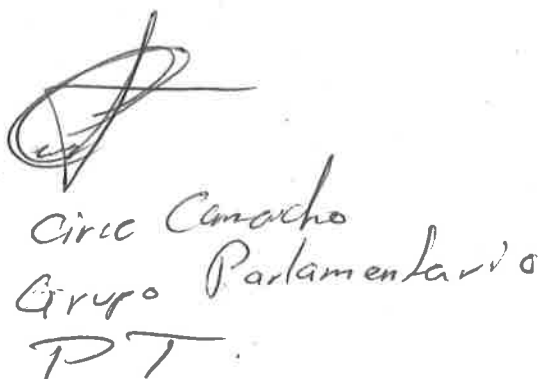 Circe Camacho
Grupo Parlamentario
PT.